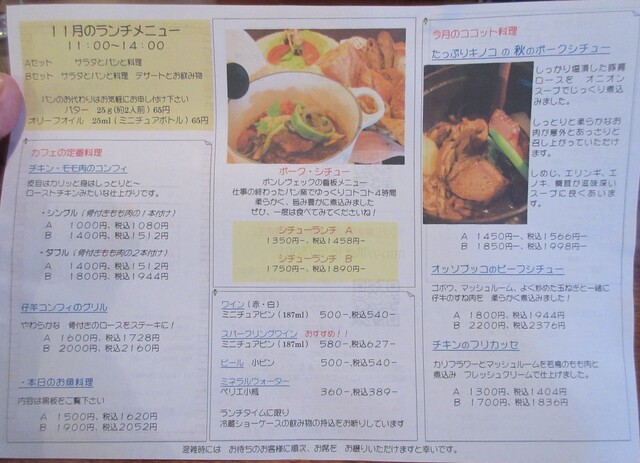 11月のランチメニュー
11:00～14:00
Aセット　サラダとパンと料理
Bセット　サラダとパンと料理　デザートとお飲み物
パンのお代わりはお気軽にお申し付け下さい
バター　25g(約2人前)65円
オリーブオイル　25ml(ミニチュアボトル)65円
カフェの定番料理
チキン・モモ肉のコンフィ
皮目はカリッと身はしっとりと～
ローストチキンみたいな仕上がりです。
・シングル(骨付きもも肉の1本付け)
A　1000円、税込1080円
B　1400円、税込1512円
・ダブル(骨付きもも肉の2本付け)
A　1400円、税込1512円
B　1800円、税込1944円
仔羊コンフィのグリル
やわらかな　骨付きのロースをステーキに!
A　1600円、税込1728円
B　2000円、税込2160円
・本日のお魚料理
内容は黒板をご覧下さい
A　1500円、税込1620円
B　1900円、税込2052円
ポーク・シチュー
ポンレヴェックの看板メニュー
仕事の終わったパン窯でゆっくりコトコト4時間
柔らかく、旨み豊かに煮込みました
ぜひ、一度は食べてみてくださいね!
シチューランチ　A
1350円-、税込1458円-
シチューランチ　B
1750円-、税込1890円-
ワイン(赤・白)
ミニチュアビン(187ml)　500-、税込540-
スパークリングワイン　おすすめ!!
ミニチュアビン(187ml)　580-、税込627-
ビール　小ビン　500-、税込540-
ミネラルウォーター
ペリエ小瓶　360-、税込389-
ランチタイムに限り
冷蔵ショーケースの飲み物の持込をお断りしています
今月のココット料理
たっぷりキノコ の 秋のポークシチュー
しっかり塩漬した豚肩
ロースを　オニオン
スープでじっくり煮込
みました。
しっとりと柔らかなお
肉が意外とあっさりと
召し上がっていただけ
ます。
しめじ、エリンギ、エ
ノキ、舞茸が滋味深い
スープに良くあいま
す。
A　1450円-、税込1566円-
B　1850円-、税込1998円-
オッソブッコのビーフシチュー
ゴボウ、マッシュルーム、よく炒めた玉ねぎと一緒に
仔牛のすね肉を　柔らかく煮込みました!
A　1800円、税込1944円
B　2200円、税込2376円
チキンのフリカッセ
カリフラワーとマッシュルームを若鳥のもも肉と
煮込み　フレッシュクリームで仕上げました。
A　1300円、税込1404円
B　1700円、税込1836円
混雑時には　お待ちのお客様に順次、お席を　お譲りいただけますと幸いです。